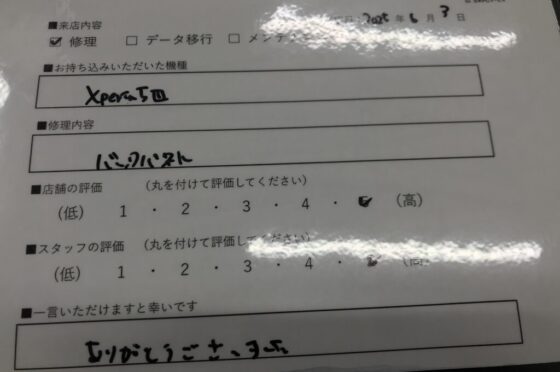 ■来店内容
2025年6月3日
☑修理 □データ移行 □メンテ
■お持ち込みいただいた機種
Xperia5III
■修理内容
バックパネル
■店舗の評価 (丸を付けて評価してください)
(低) 1・2・3・4・5 (高)
■スタッフの評価 (丸を付けて評価してください)
(低) 1・2・3・4・5 (高)
■一言いただけますと幸いです
ありがとうございました